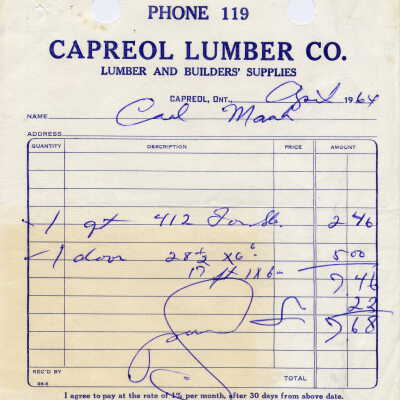 PHONE 119
CAPREOL LUMBER CO.
LUMBER AND BUILDERS' SUPPLIES
CAPREOL, ONT., April 1964
NAME Carl Mash
ADDRESS
QUANTITY DESCRIPTION PRICE AMOUNT
1 qt 412 2 46
1 door 28 1/2 x 6 6 5 00
17 ft 1x6 7 46
22
7 68
REC'D BY TOTAL
I agree to pay at the rate of 1% per month, after 30 days from above date.